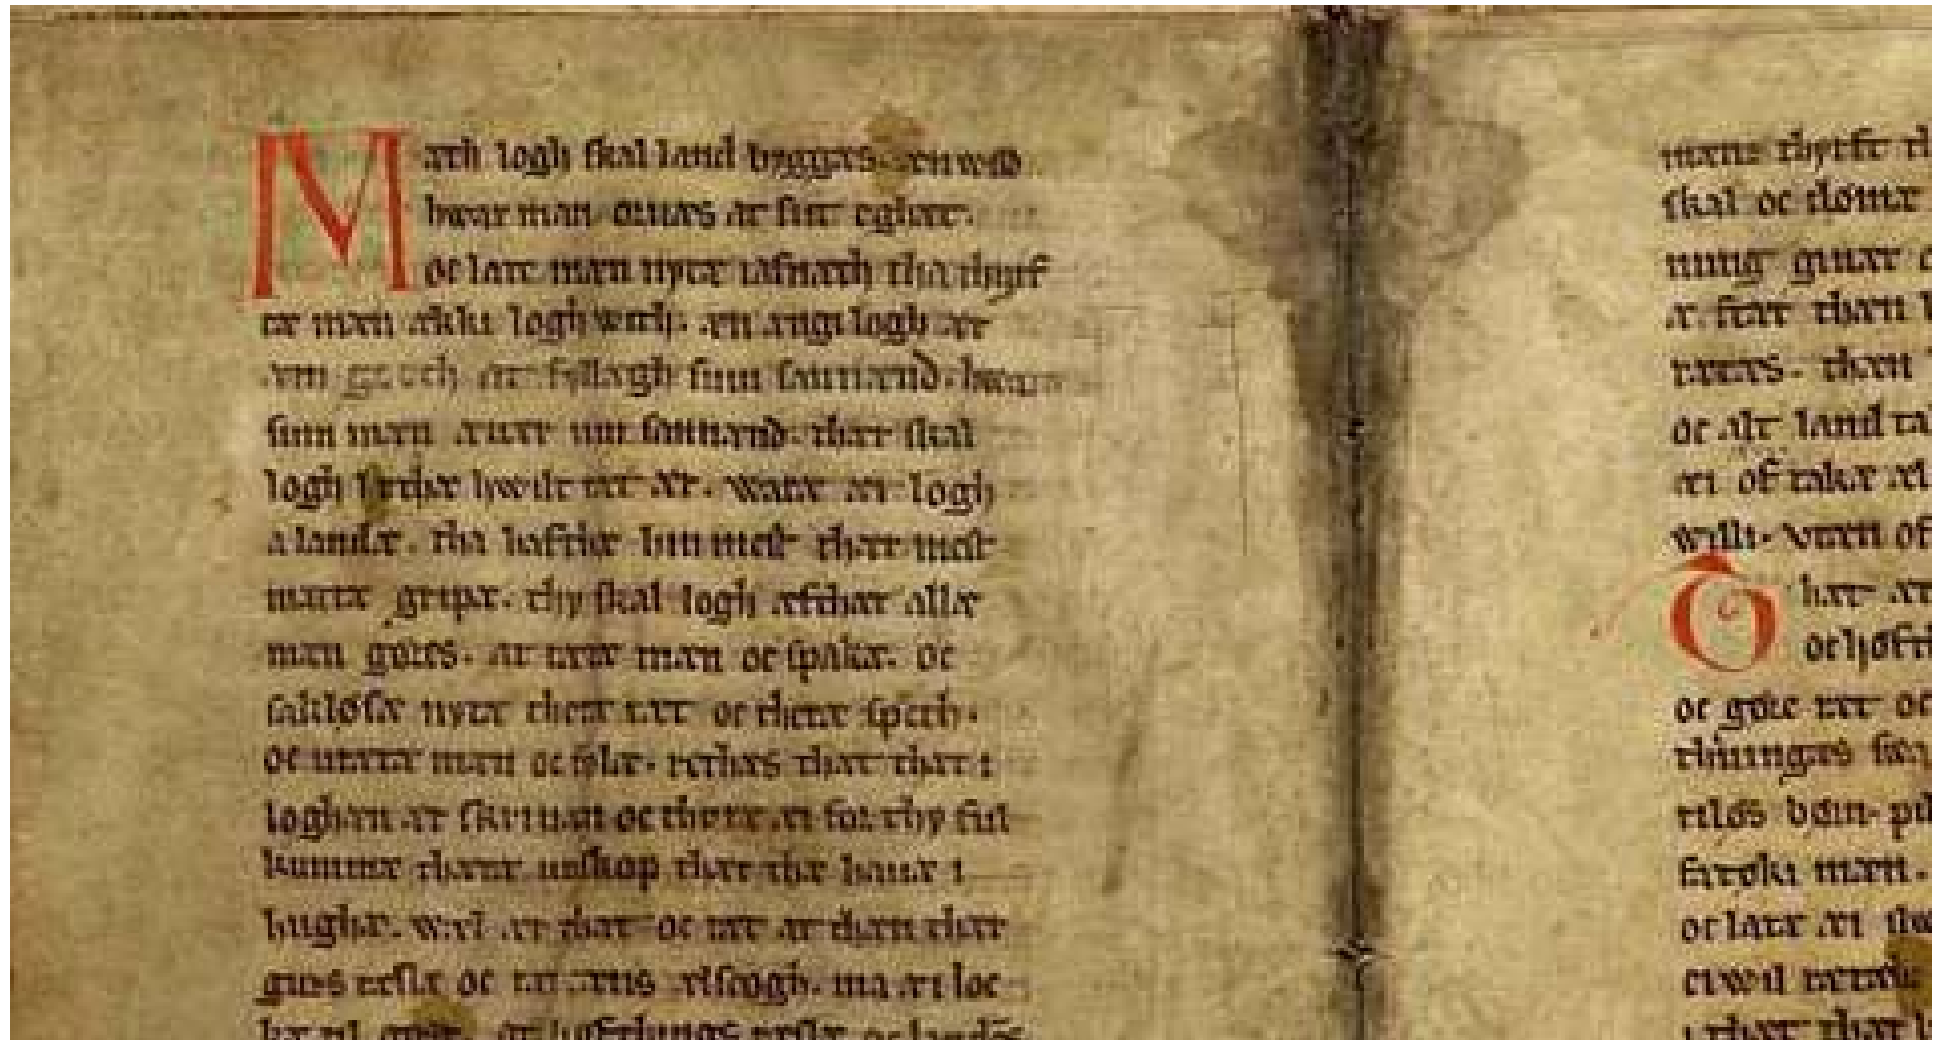 Mæth logh skal land byggæs. æn wild
hwar man oruæs at sit eghæt.
oc late mæn nytæ iafnæth tha thyrf
tæ mæn ækki logh with. æn ængi logh ær
æm at fyllægh sum sannænd. hwaræ
sum mæn æuær um sannænd. thær skal
logh lethæ hwilt ræt ær. waræ æi logh
a landæ. tha hafthæ hin mest thær mest
matæ gripæ. thy skal logh æfthær allæ
mæn gøres. at rætæ mæn oc spakæ. oc
sakløsæ nytæ theræ ræt oc theræ spæth.
oc urætæ mæn oc folæ. rethæs thæt thær i
loghæn ær skriuan oc thoræ æi for thy ful
kummæ theræ unskop thær the hauæ i
hughæ. wæl ær thæt oc ræt at thæn thær
guts ræslæ oc rætæns ælscogh. ma æi loc
kæ til goz. at høfthings ræslæ oc landæs
mæns thyrft th
skal oc dømæ
nung giuær
æ. ftær thæn
rææs. thæn
oc alt land ta
æi of takæ æl
wili. utæn of
That ær
oc høfth
oc gøre ræt oc
thuingæs
riløs børn. pil
mæn.
oc latæ æi
ei wil rætæ
i thær thæt